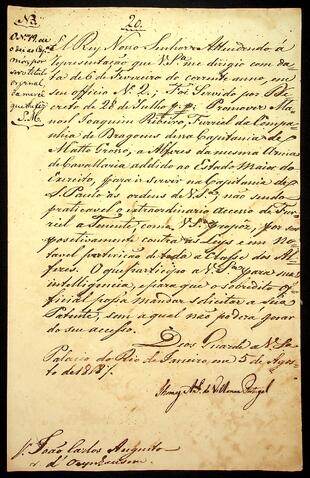 20.
El Rey Nosso Senhor Attendendo á
representação que V. S.ª me dirigio com da-
ta de 6 de Fevereiro do corrente anno, em
seu officio N.º 2; Foi Servido por De-
creto de 28 de Julho p. p. Promover Ma-
noel Joaquim Ribeiro, Furriel da Compa-
nhia de Dragoens da Capitania de
Matto Grosso, a Alferes da mesma Arma
de Cavallaria addido ao Estado Maior do
Exercito, para ir servir na Capitania de
S. Paulo ás ordens de V. S.ª, não sendo
praticavel o extraordinario accesso de Fur-
riel a Tenente, como V. S.ª propoz, por ser
positivamente contra as Leys e em no-
tavel perturbação de toda a Classe dos Al-
feres. O que participo a V. S.ª para sua
intelligencia, e para que o sobredito Of-
ficial possa mandar solicitar a sua
Patente, sem a qual não poderá gozar
do seu accesso.
Deos Guarde a V. S.ª
Palacio do Rio de Janeiro, em 5 de Agos-
to de 1817.
Thomaz Ant.º de Villanova Portugal
Sr. João Carlos Augusto
d'Oeynhausen.